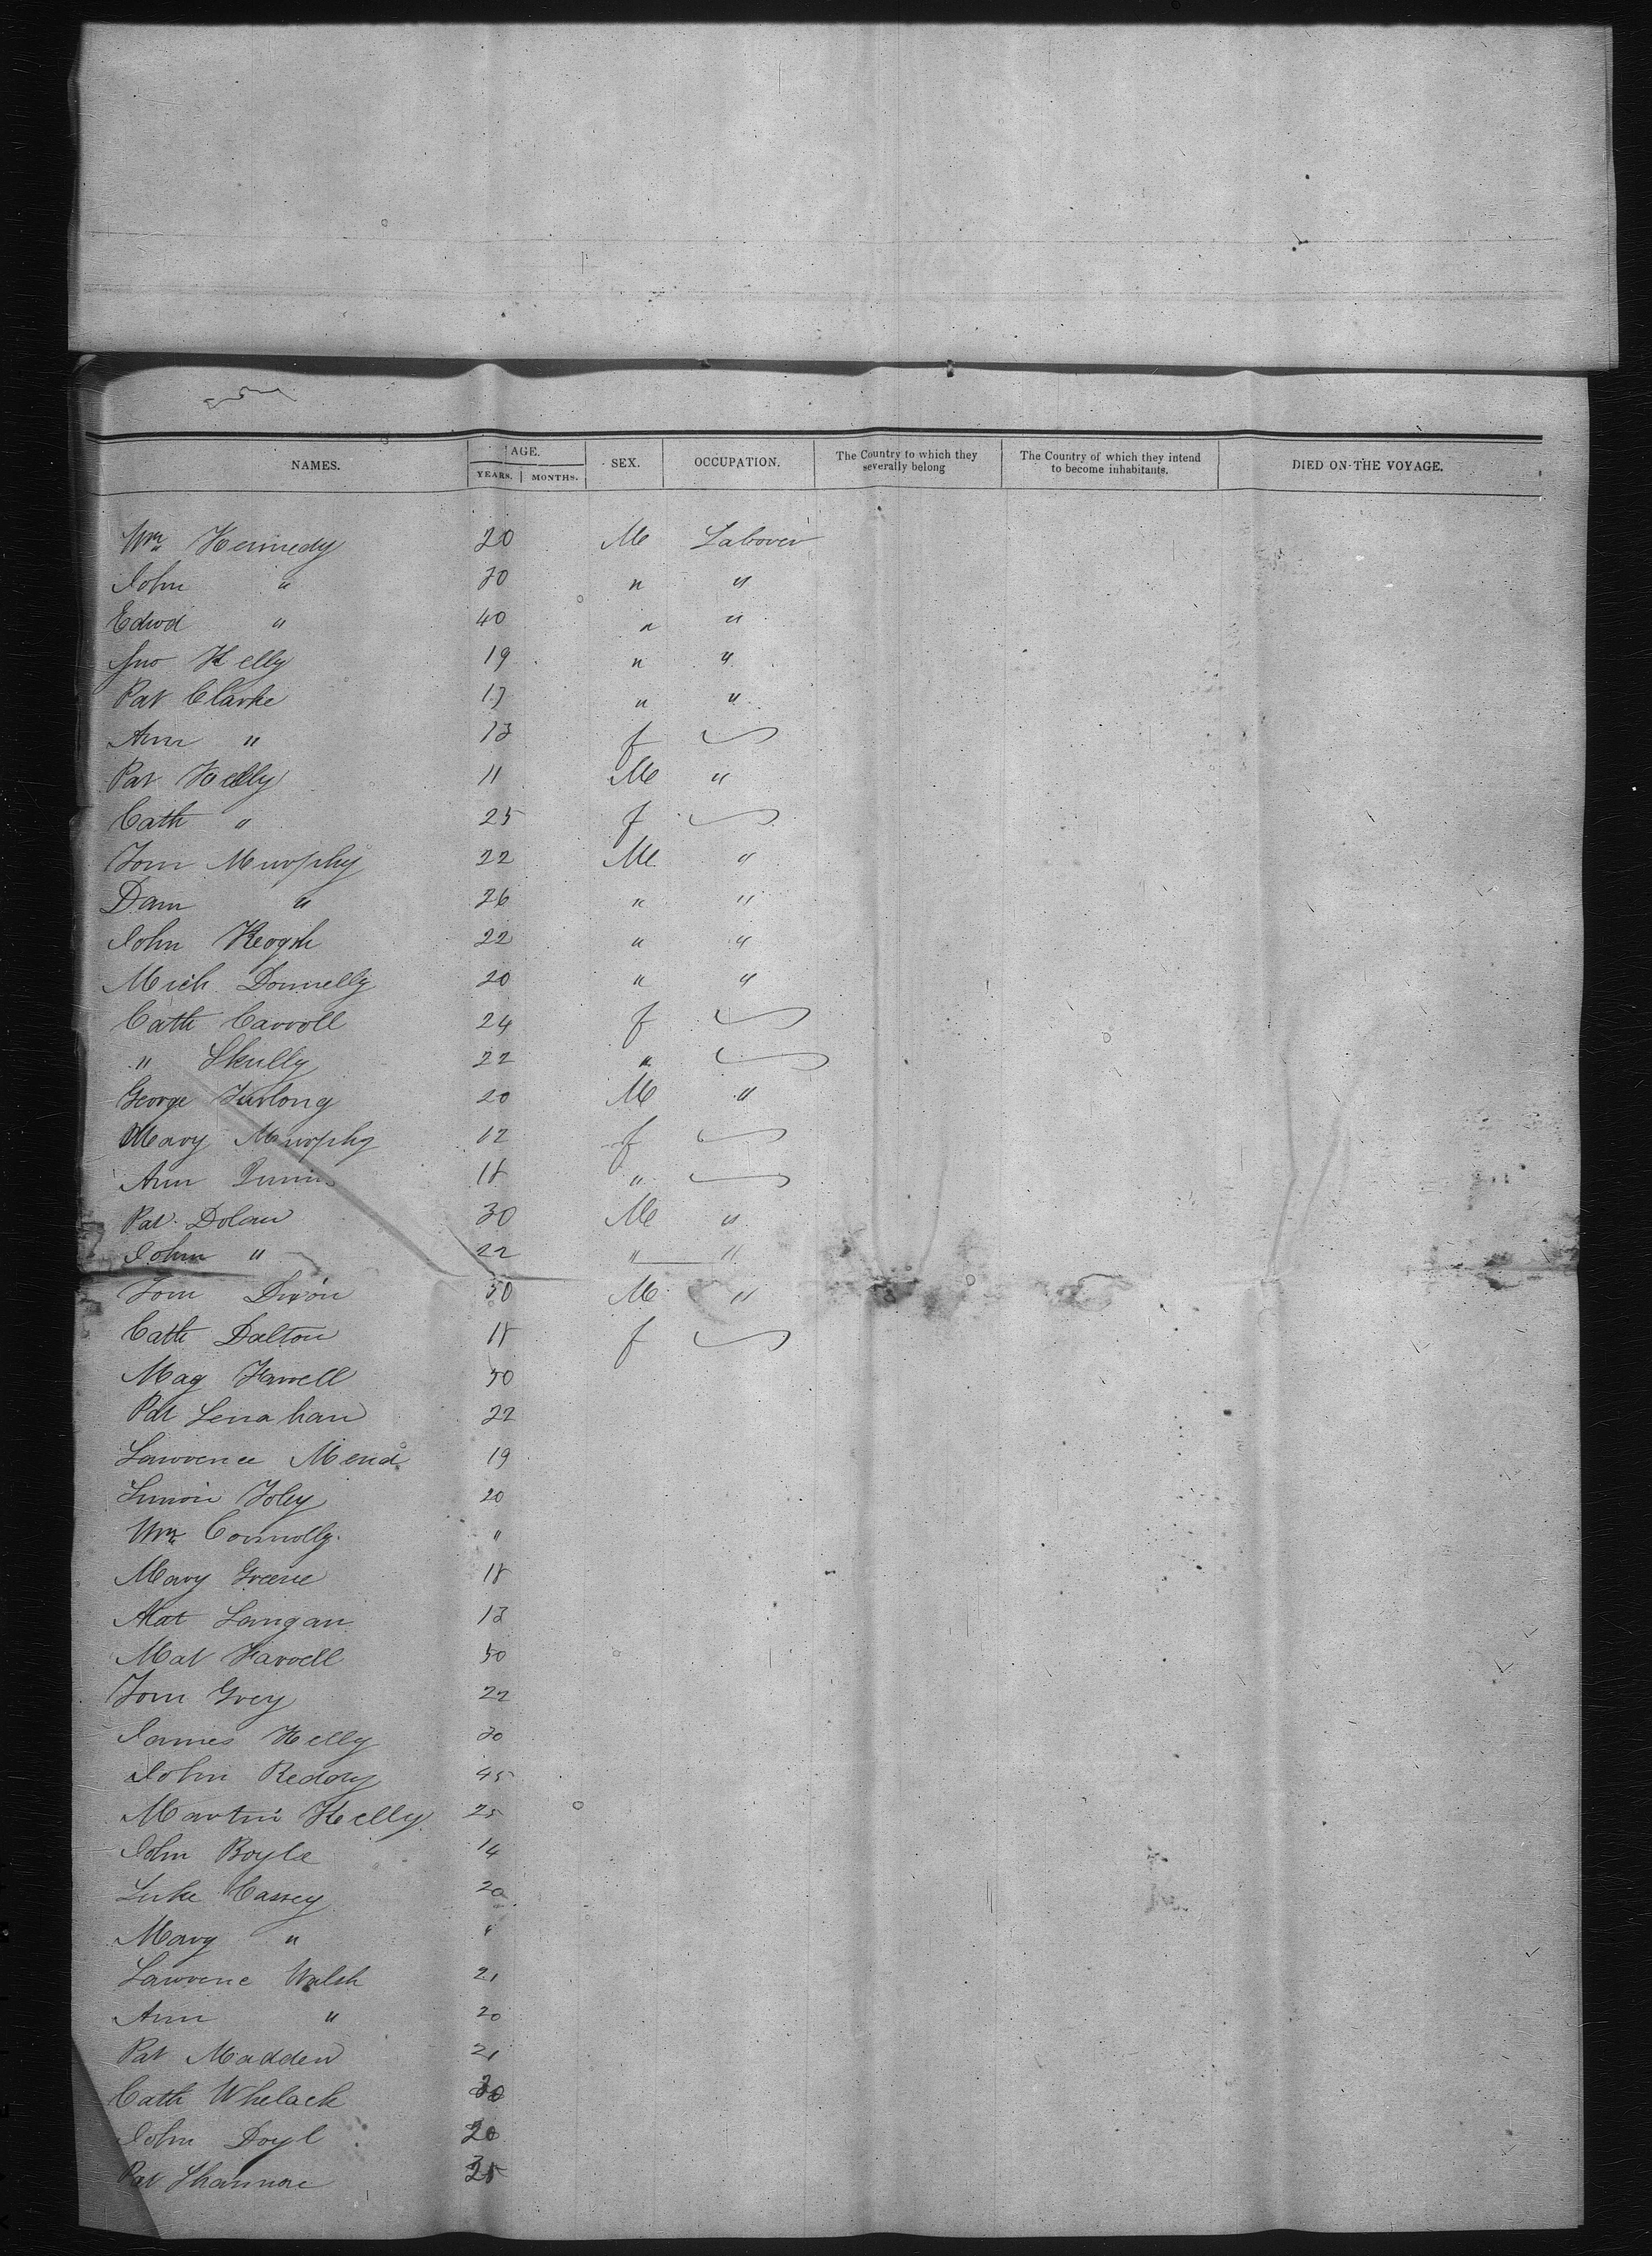 NAMES. AGE. YEARS. MONTHS. SEX. OCCUPATION. The Country to which they severally belong The Country of which they intend to become inhabitants. DIED ON THE VOYAGE.
Wm Kennedy 20 M Laborer
John " 30 " "
Edwd " 40 " "
Jno Kelly 19 " "
Pat Clarke 17 " "
Ann " 13 f
Pat Kelly 11 M "
Cath " 25 f
Tom Murphy 22 M "
Dam " 26 " "
John Keogh 22 " "
Mich Donnelly 20 " "
Cath Carroll 24 f
" Skully 22 "
George Furlong 20 M "
Mary Murphy 12 f
Ann Quinn 18 "
Pat Dolan 30 M "
John " 22 " "
Tom Dixon 50 M "
Cath Dalton 18 f
Mag Farrell 50
Pat Lenahan 22
Lawrence Mead 19
Simon Foley 20
Wm Connolly "
Mary Greene 18
Mat Langan 13
Mat Farrell 50
Tom Grey 22
James Kelly 30
John Reddy 45
Martin Kelly 25
John Boyle 14
Luke Cassey 20
Mary " "
Lawrene Walsh 21
Ann " 20
Pat Madden 21
Cath Whelack
John Doyl 20
Pat Shannon